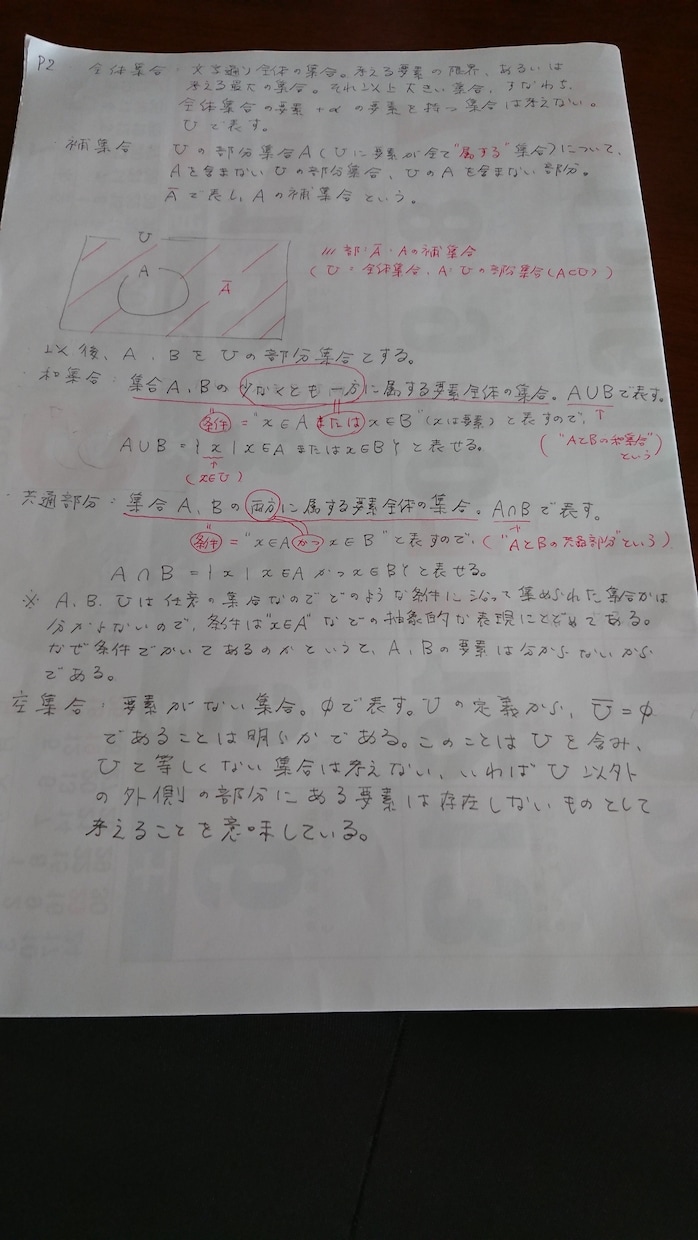 P2
全体集合:文字通り全体の集合。考える要素の限界、あるいは
考える最大の集合。それ以上大きい集合、すなわち、
全体集合の要素+αの要素を持つ集合は考えない。
Uで表す。
・補集合 Uの部分集合A(Uに要素が全て"属する"集合)について、
Aを含まないUの部分集合、UのAを含まない部分。
A̅で表し、Aの補集合という。
U
A
A̅
///部:A̅・Aの補集合
(U:全体集合、A:Uの部分集合(A⊂U))
以後、A、BをUの部分集合とする。
・和集合:集合A、Bの少なくとも一方に属する要素全体の集合。A∪Bで表す。
条件="x∈Aまたはx∈B"(xは要素)と表すので、
("AとBの和集合"
という)
A∪B={x|x∈Aまたはx∈B}と表せる。
(x∈U)
・共通部分:集合A、Bの両方に属する要素全体の集合。A∩Bで表す。
条件="x∈Aかつx∈B"と表すので、("AとBの共通部分"という)
A∩B={x|x∈Aかつx∈B}と表せる。
※A、B、Uは任意の集合なのでどのような条件に沿って集められた集合かは
分からないので、条件は"x∈A"などの抽象的な表現にとどめてある。
なぜ条件でかいてあるのかというと、A、Bの要素は分からないから
である。
空集合:要素がない集合。φで表す。Uの定義から、U̅=φ
であることは明らかである。このことはUを含み、
Uと等しくない集合は考えない、いわばU以外
の外側の部分にある要素は存在しないものとして
考えることを意味している。